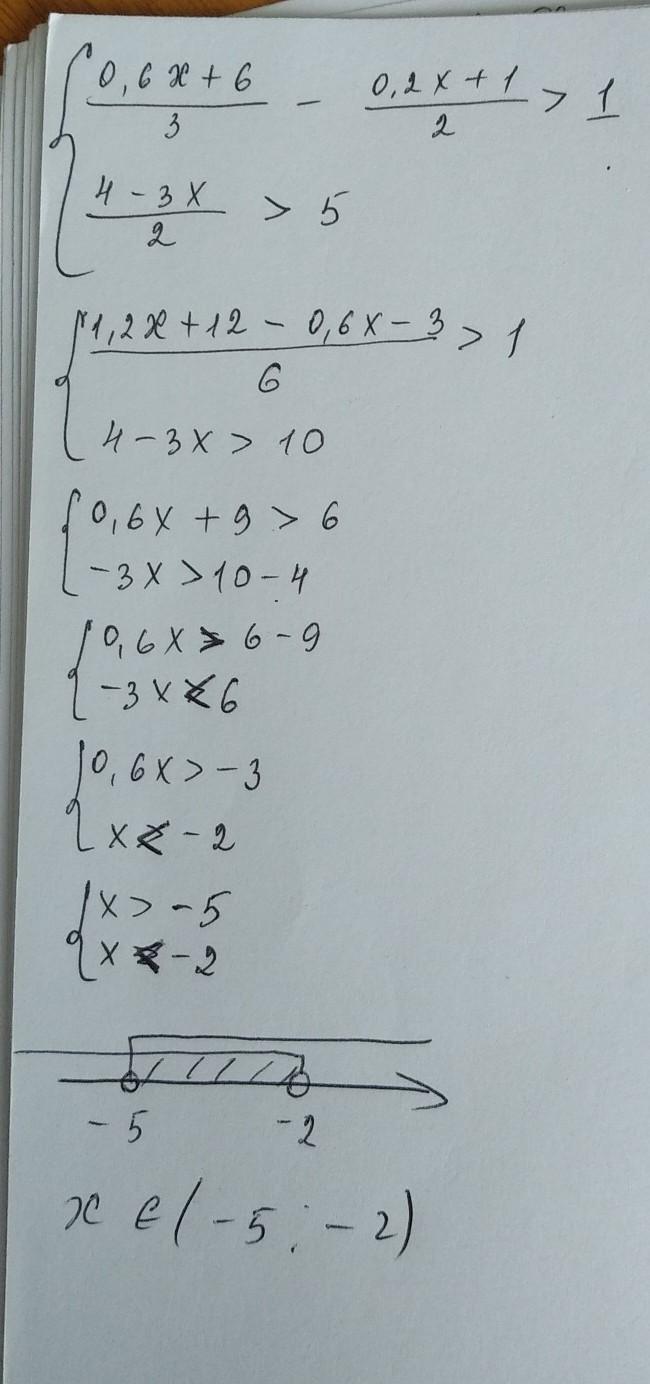 (0,6x + 6)/3 - (0,2x + 1)/2 > 1
(4 - 3x)/2 > 5
(1,2x + 12 - 0,6x - 3)/6 > 1
4 - 3x > 10
0,6x + 9 > 6
-3x > 10 - 4
0,6x > 6 - 9
-3x < 6
0,6x > -3
x < -2
x > -5
x < -2
-5 -2
x ∈ (-5; -2)